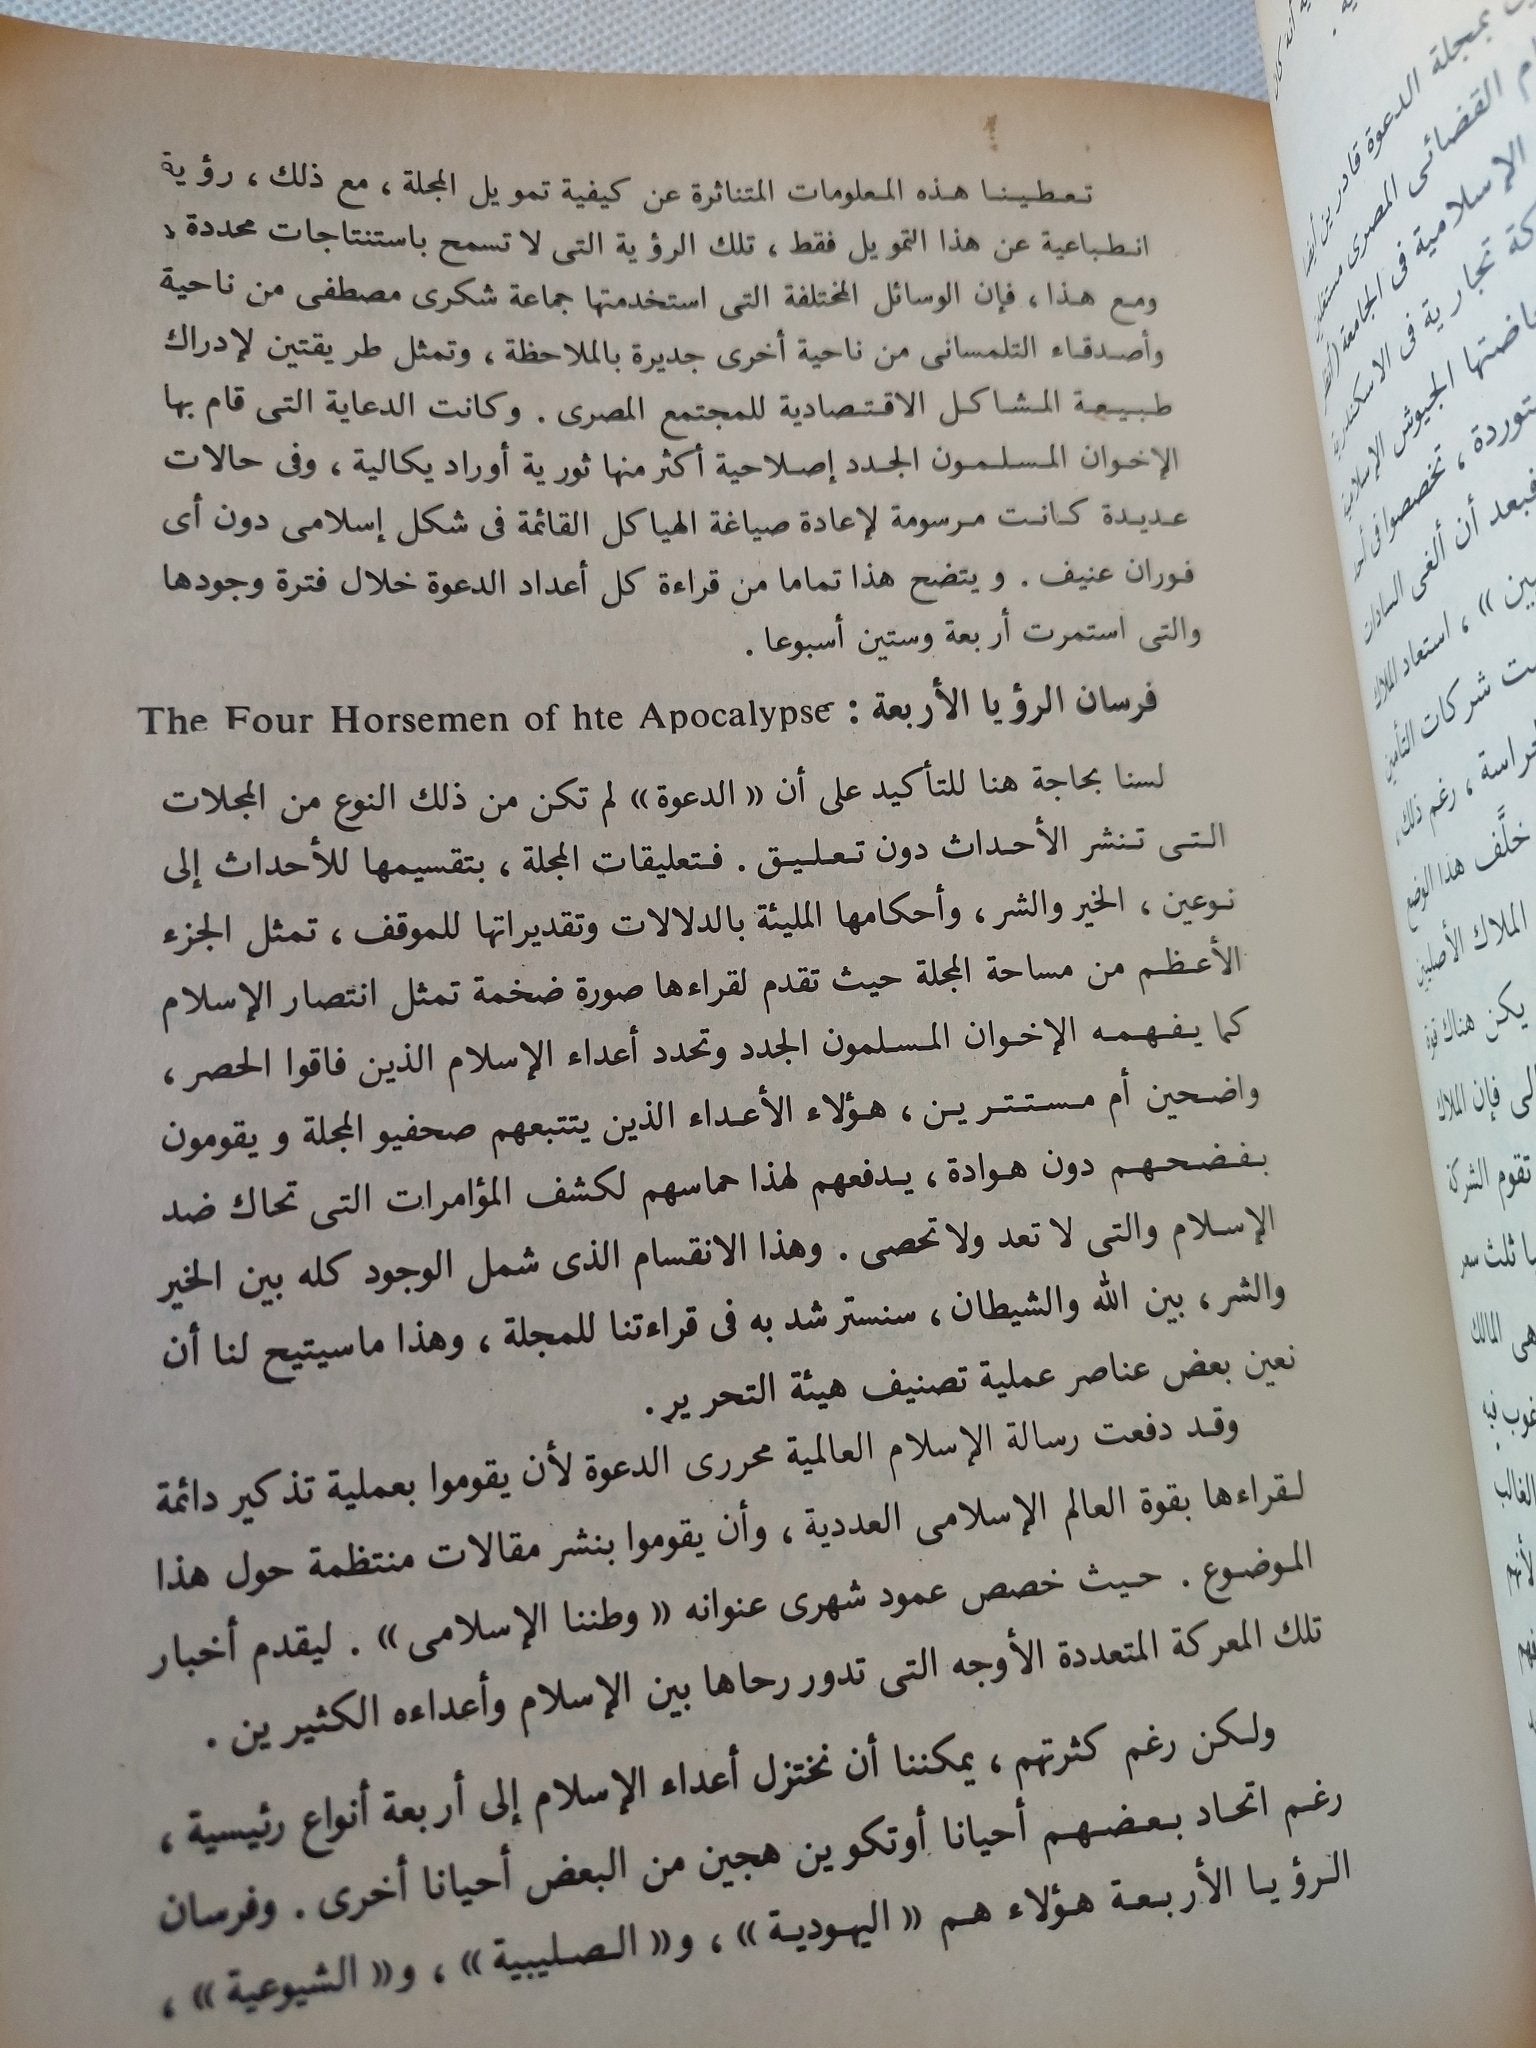 تعطينا هذه المعلومات المتناثرة عن كيفية تمويل المجلة ، مع ذلك ، رؤية
انطباعية عن هذا التمويل فقط ، تلك الرؤية التى لا تسمح باستنتاجات محددة
ومع هذا ، فإن الوسائل المختلفة التى استخدمتها جماعة شكرى مصطفى من ناحية
وأصدقاء التلمسانى من ناحية أخرى جديرة بالملاحظة ، وتمثل طريقتين لإدراك
طبيعة المشاكل الاقتصادية للمجتمع المصرى . وكانت الدعاية التى قام بها
الإخوان المسلمون الجدد إصلاحية أكثر منها ثورية أوراديكالية ، وفى حالات
عديدة كانت مرسومة لإعادة صياغة الهياكل القائمة فى شكل إسلامى دون أى
فوران عنيف . ويتضح هذا تماما من قراءة كل أعداد الدعوة خلال فترة وجودها
والتى استمرت أربعة وستين أسبوعا .
فرسان الرؤيا الأربعة : The Four Horsemen of hte Apocalypse
لسنا بحاجة هنا للتأكيد على أن « الدعوة » لم تكن من ذلك النوع من المجلات
التى تنشر الأحداث دون تعليق . فتعليقات المجلة ، بتقسيمها للأحداث إلى
نوعين ، الخير والشر ، وأحكامها المليئة بالدلالات وتقديراتها للموقف ، تمثل الجزء
الأعظم من مساحة المجلة حيث تقدم لقراءها صورة ضخمة تمثل انتصار الإسلام
كما يفهمه الإخوان المسلمون الجدد وتحدد أعداء الإسلام الذين فاقوا الحصر ،
واضحين أم مستترين ، هؤلاء الأعداء الذين يتتبعهم صحفيو المجلة ويقومون
بفضحهم دون هوادة ، يدفعهم لهذا حماسهم لكشف المؤامرات التى تحاك ضد
الإسلام والتى لا تعد ولا تحصى . وهذا الانقسام الذى شمل الوجود كله بين الخير
والشر ، بين الله والشيطان ، سنسترشد به فى قراءتنا للمجلة ، وهذا ماسيتيح لنا أن
نعين بعض عناصر عملية تصنيف هيئة التحرير .
وقد دفعت رسالة الإسلام العالمية محررى الدعوة لأن يقوموا بعملية تذكير دائمة
لقراءها بقوة العالم الإسلامى العددية ، وأن يقوموا بنشر مقالات منتظمة حول هذا
الموضوع . حيث خصص عمود شهرى عنوانه « وطننا الإسلامى » . ليقدم أخبار
تلك المعركة المتعددة الأوجه التى تدور رحاها بين الإسلام وأعداءه الكثيرين .
ولكن رغم كثرتهم ، يمكننا أن نختزل أعداء الإسلام إلى أربعة أنواع رئيسية ،
رغم اتحاد بعضهم أحيانا أوتكوين هجين من البعض أحيانا أخرى . وفرسان
الرؤيا الأربعة هؤلاء هم « اليهودية » ، و« الصليبية » ، و« الشيوعية » ،
بمجلة الدعوة قادرين أيضا
القضائى المصرى مستغلين
الإسلامية فى الجامعة
تجارية فى الاسكندرية
الجيوش الإسلامية
تخصصوا فى
فبعد أن ألغى السادات
استعاد الملاك
شركات التأمين
رغم ذلك ،
خلَّف هذا الوضع
الملاك الأصليين
يكن هناك قوة
فإن الملاك
تقوم الشركة
ثلث سعر
هى المالك
فيه
الغالب
لأنهم